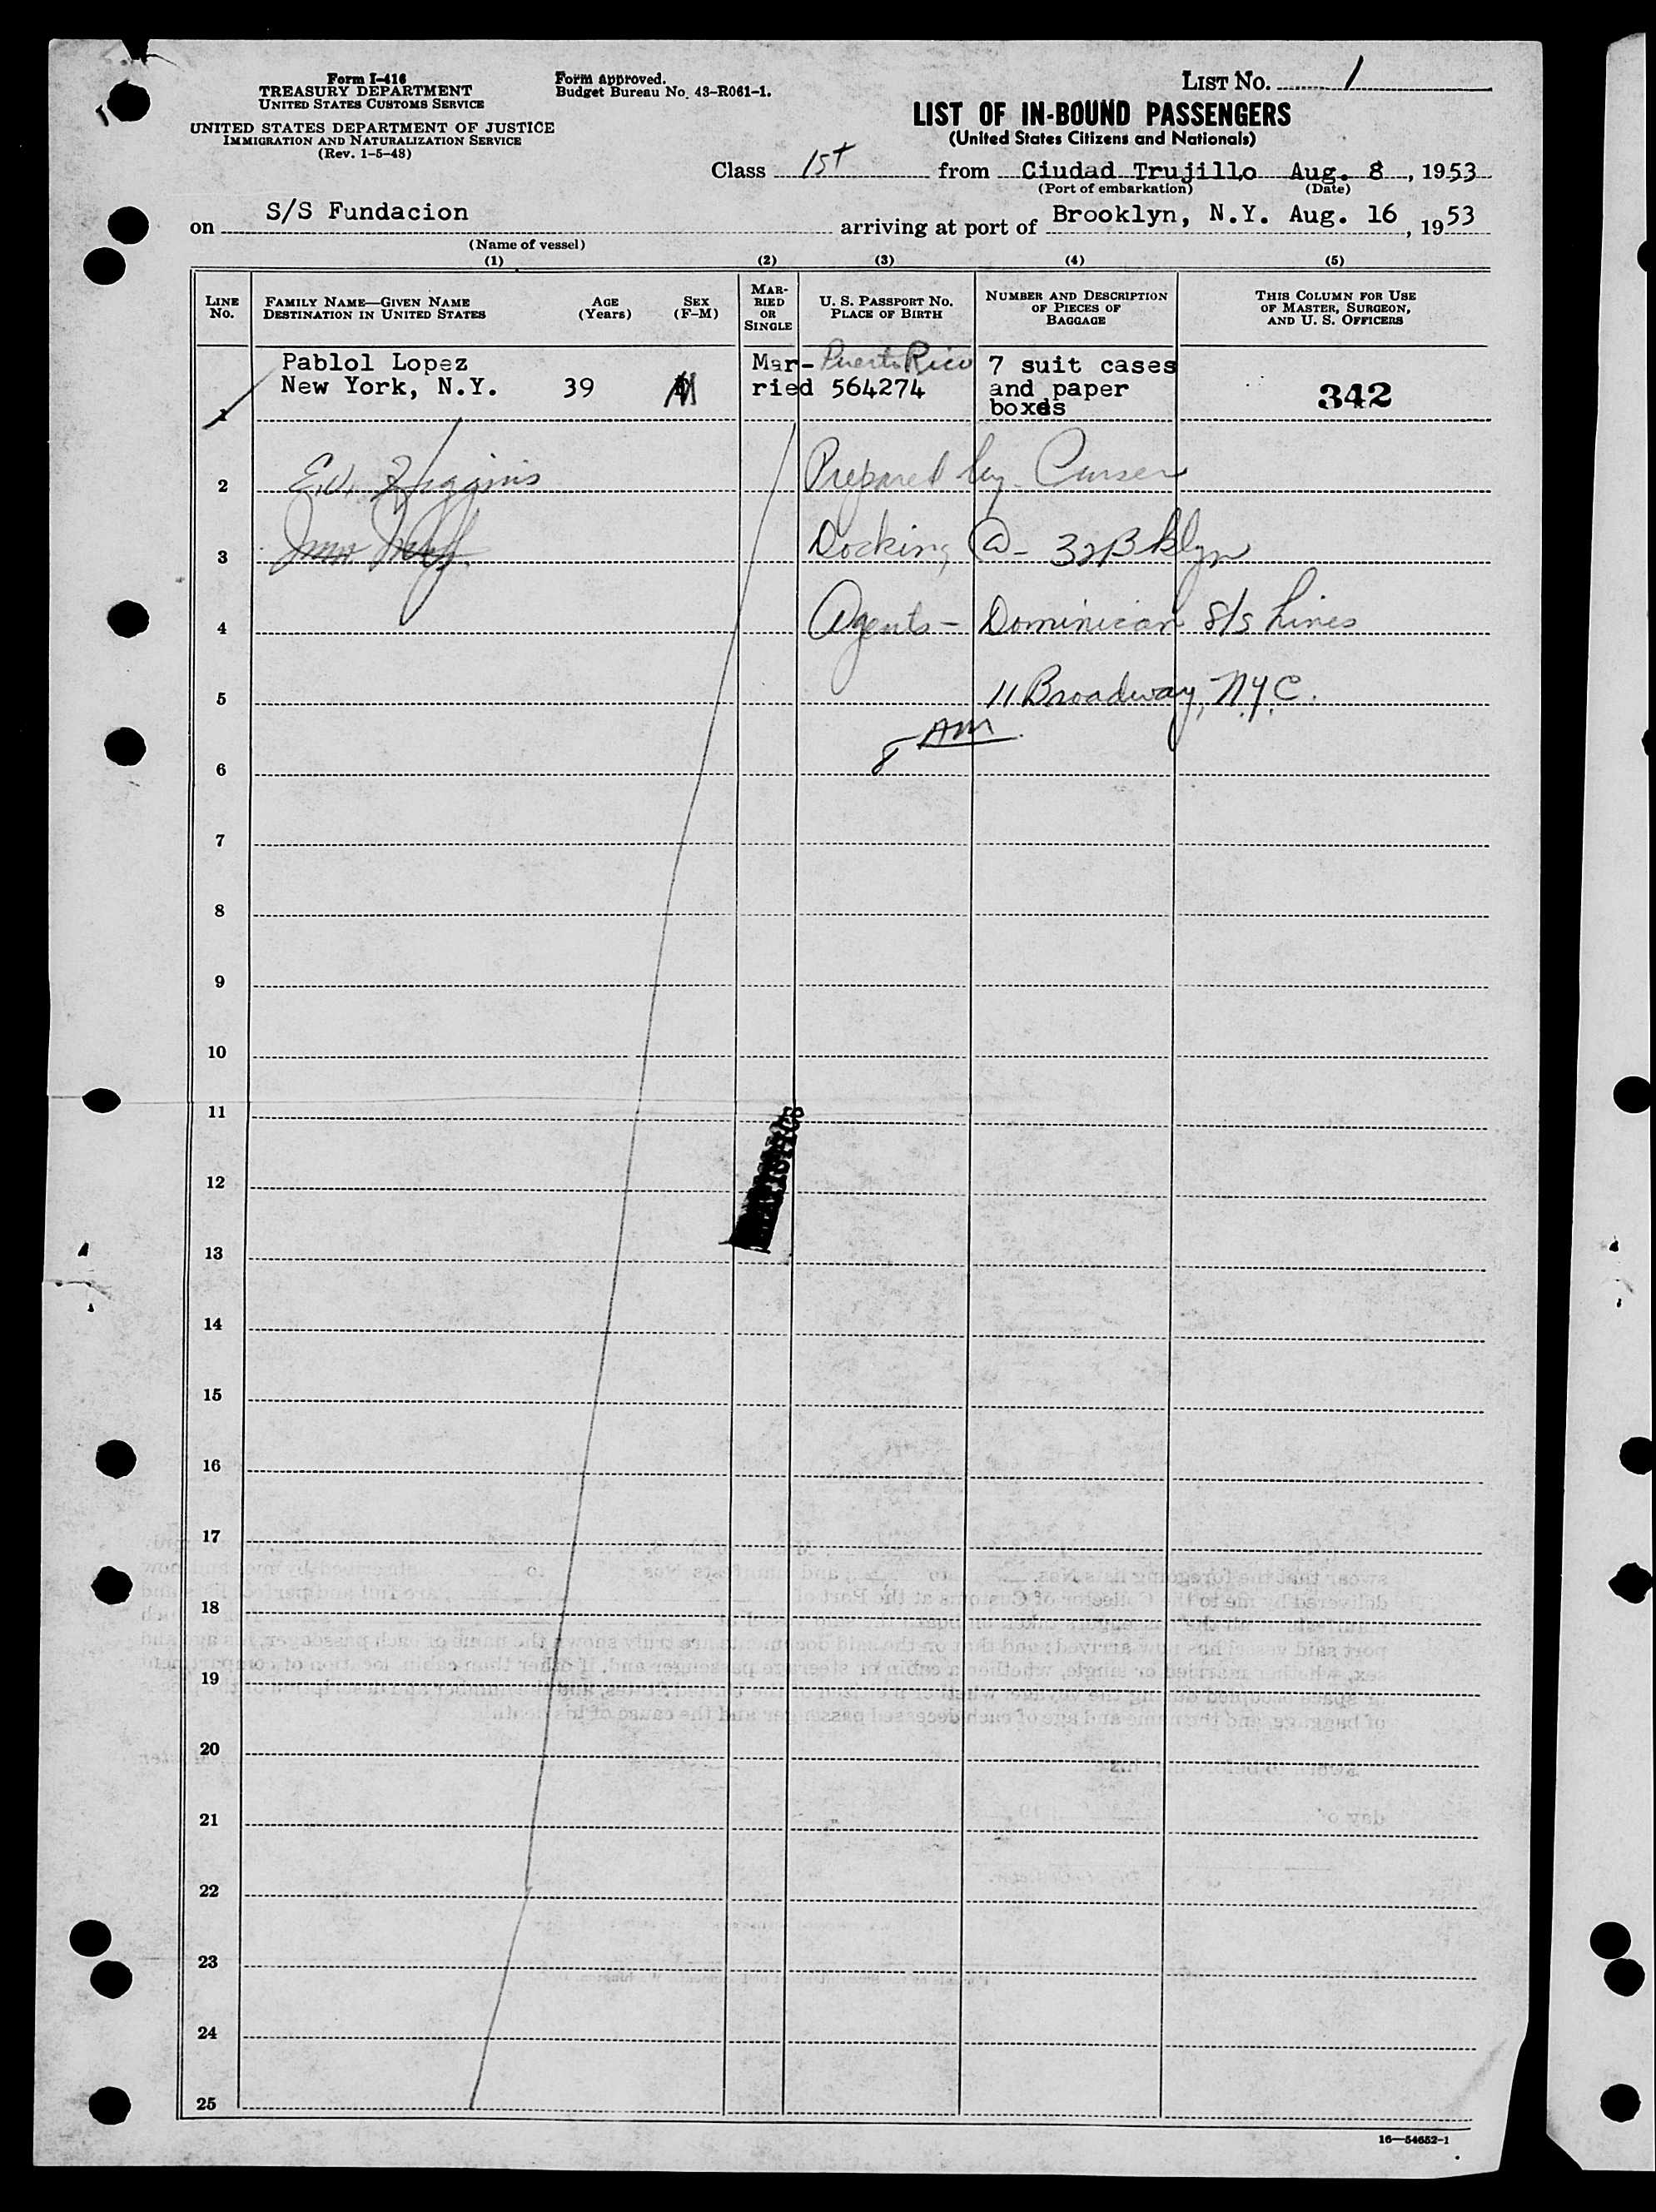 Form I-416
TREASURY DEPARTMENT
UNITED STATES CUSTOMS SERVICE
UNITED STATES DEPARTMENT OF JUSTICE
IMMIGRATION AND NATURALIZATION SERVICE
(Rev. 1-5-48)
Form approved.
Budget Bureau No. 43-R061-1.
LIST NO. 1
LIST OF IN-BOUND PASSENGERS
(United States Citizens and Nationals)
Class 1st from Ciudad Trujillo Aug. 8, 1953
(Port of embarkation) (Date)
on S/S Fundacion arriving at port of Brooklyn, N.Y. Aug. 16, 1953
(Name of vessel)
(1) (2) (3) (4) (5)
LINE No.
FAMILY NAME—GIVEN NAME
DESTINATION IN UNITED STATES
AGE (Years)
SEX (F-M)
MAR-
RIED
OR
SINGLE
U. S. PASSPORT NO.
PLACE OF BIRTH
NUMBER AND DESCRIPTION
OF PIECES OF
BAGGAGE
THIS COLUMN FOR USE
OF MASTER, SURGEON,
AND U. S. OFFICERS
Pablol Lopez Mar- Puerto Rico 7 suit cases
New York, N.Y. 39 M ried 564274 and paper 342
1 boxes
2 E.V. Higgins Prepared by Purser
3 Docking @ - 32 Bklyn
4 Agents - Dominican S/S Lines
5 11 Broadway, N.Y.C.
8 AM
6
7
8
9
10
11
12
13
14
15
16
17
18
19
20
21
22
23
24
25
16—54652-1